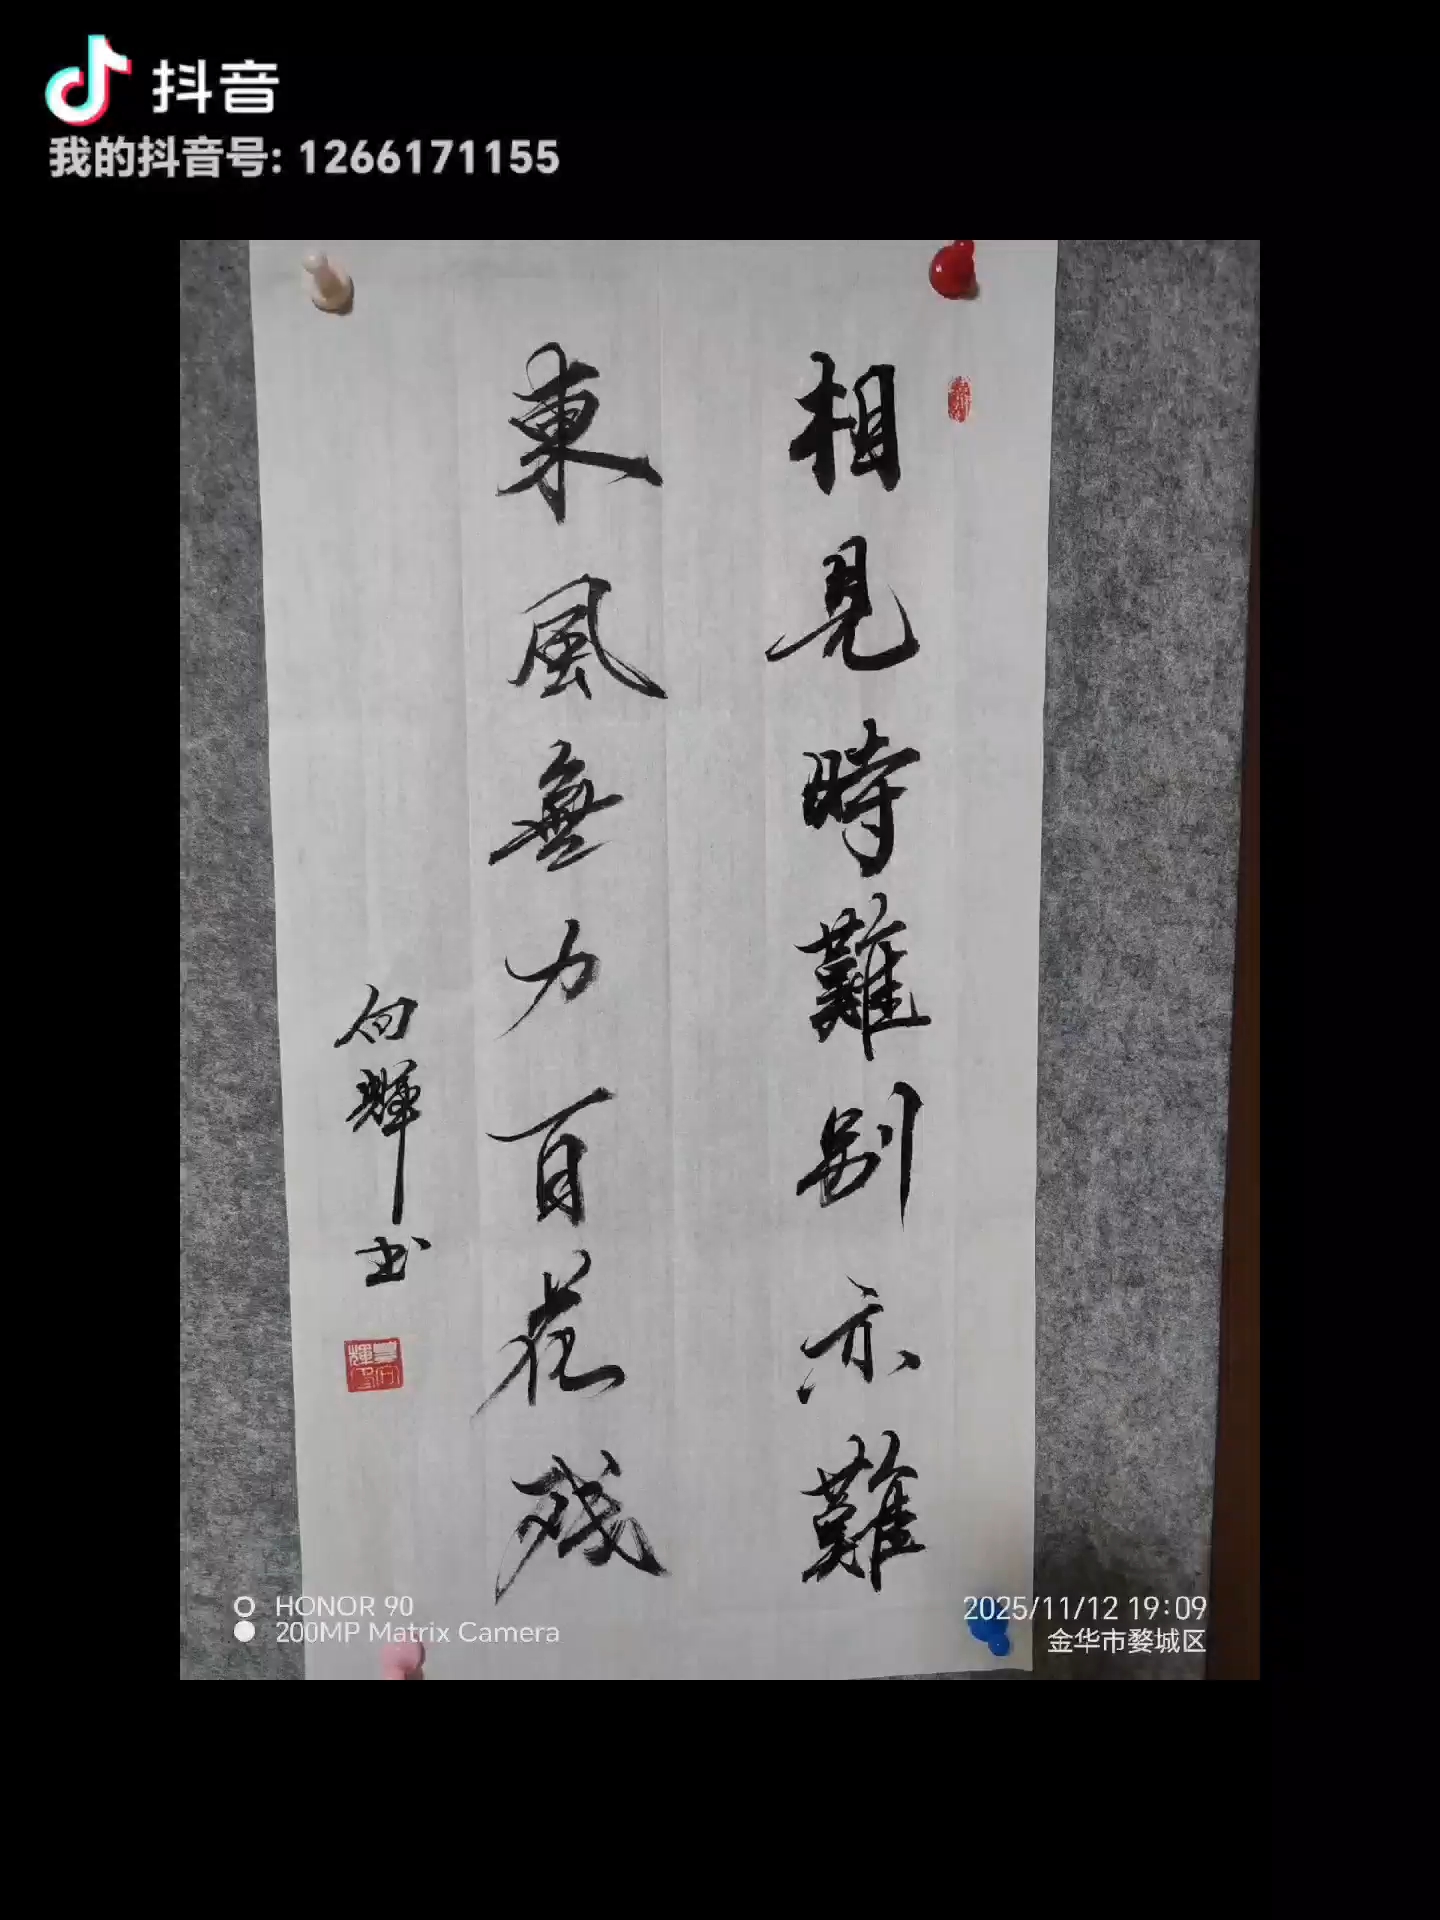 抖音
我的抖音号: 1266171155
相見時難别亦難
東風無力百花残
向輝书
HONOR 90
200MP Matrix Camera
2025/11/12 19:09
金华市婺城区